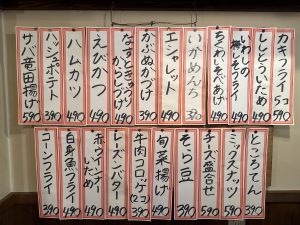 カキフライ5コ 590
ししとういため 490
いわしの梅しそフライ 490
ちくわいそべあげ 490
いかめんち 390
エシャレット 490
かぶぬかづけ 490
なすときゅうりからしづけ 490
えびかつ 490
ハムカツ 490
ハッシュポテト 390
サバ竜田揚げ 590
ところてん 390
ミックスナッツ 390
チーズ盛合せ 590
そら豆 490
旬菜揚げ 490
牛肉コロッケ(2コ) 390
レーズンバター 490
赤ウインナーいため 490
白身魚フライ 490
コーンフライ 390